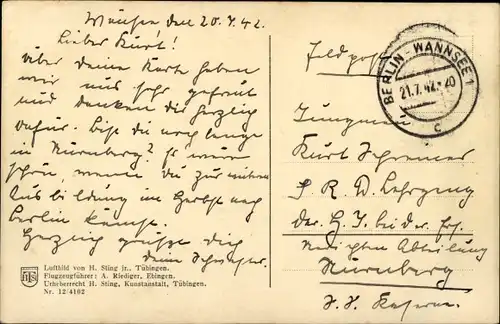 den 20.7.42.
Lieber Kurt!
Über Deine Karte haben
wir uns sehr gefreut
und danken dir herzlich
dafür. Bist du noch lange
in Nürnberg? Es wäre
schön, wenn du zur
Ausbildung im Herbst nach
Berlin kämst.
Herzlich grüßt dich
dein
Luftbild von H. Sting jr., Tübingen.
Flugzeugführer: A. Riediger, Ebingen.
Urheberrecht H. Sting, Kunstanstalt, Tübingen.
Nr. 12/4102
HST
Feldpost
BERLIN-WANNSEE 1
21.7.42.-20
c
Jungmann
Kurt
S R D Lehrgang
der H J bei der
Nachrichten Abteilung
Nürnberg
Kaserne